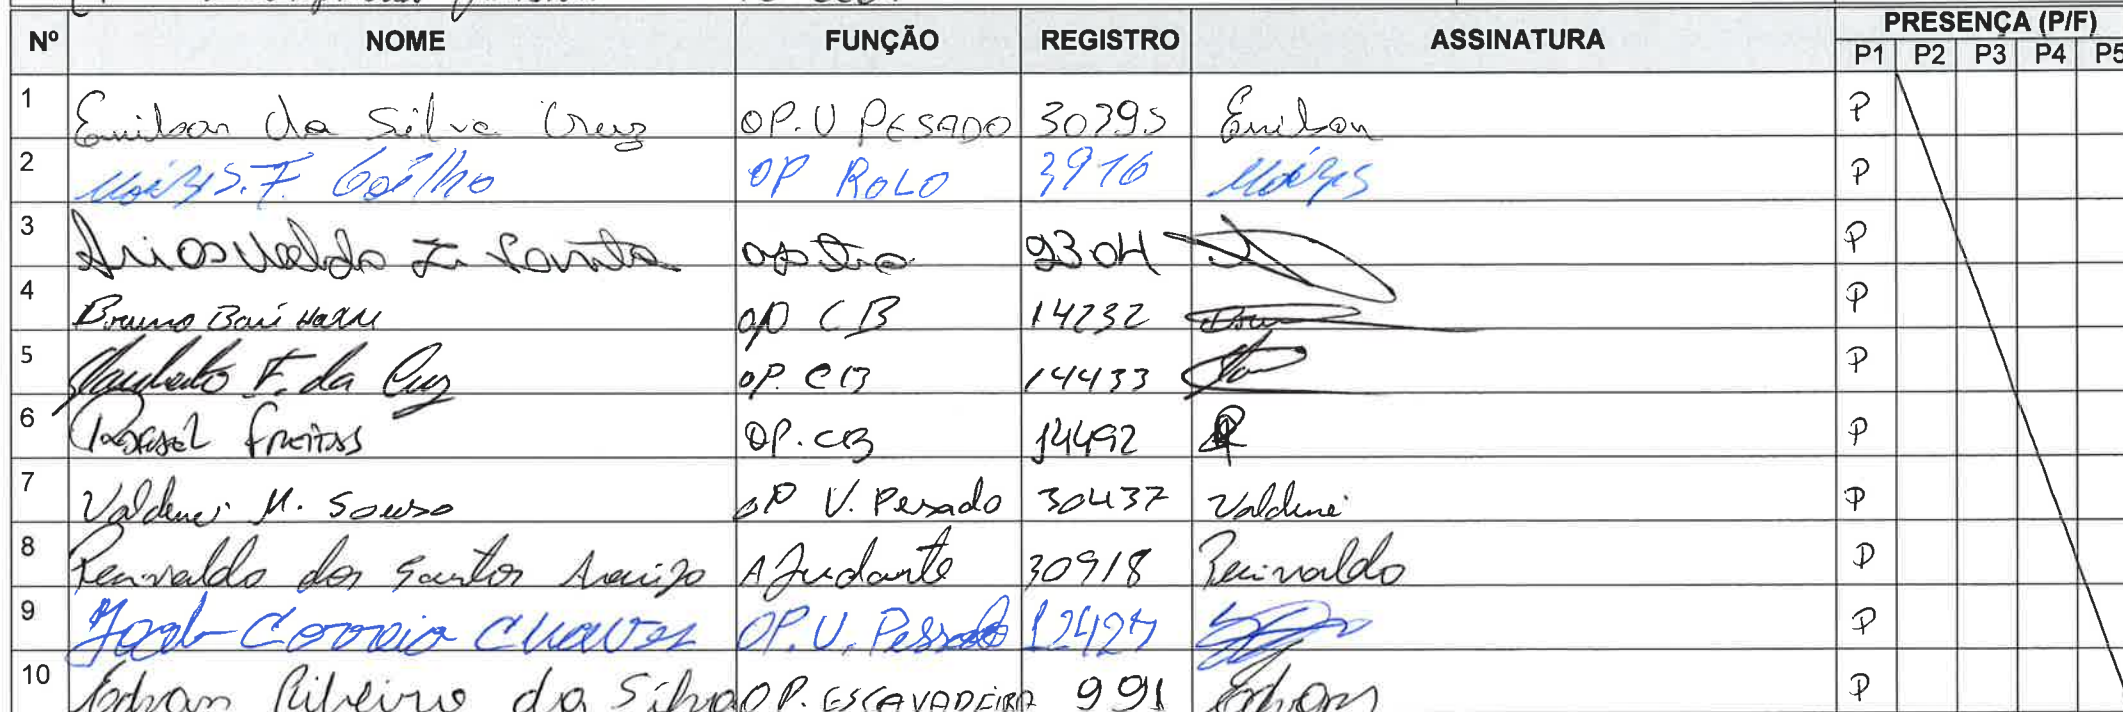 Nº NOME FUNÇÃO REGISTRO ASSINATURA PRESENÇA (P/F)
P1 P2 P3 P4 P5
1 Emilson da Silva Cruz OP. V PESADO 30395 Emilson P
2 Moizés S. F. Coêlho OP ROLO 3916 Moizés P
3 Ariosvaldo F. Santa 9304 P
4 Bruno op CB 14232 P
5 F. da Cruz OP. CB 14433 P
6 Rafael Freitas OP. CB 14492 P
7 Valdinei M. Souso OP V. Pesado 30437 Valdinei P
8 Reinvaldo dos Santos Araujo Ajudante 30918 Reinvaldo P
9 Correia Chaves OP. V. Pessado P
10 Edvan Ribeiro da Silva OP. ESCAVADEIRA 991 Edvan P